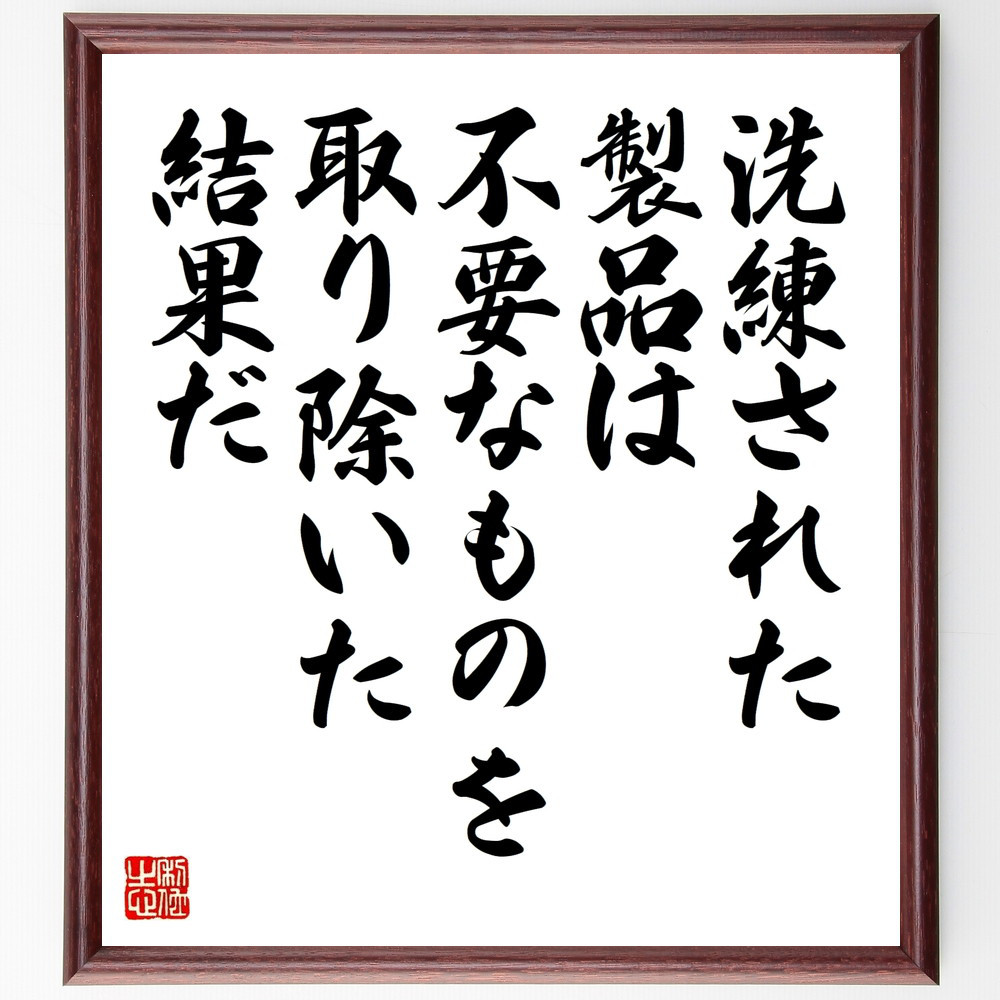 洗練された
製品は
不要なものを
取り除いた
結果だ